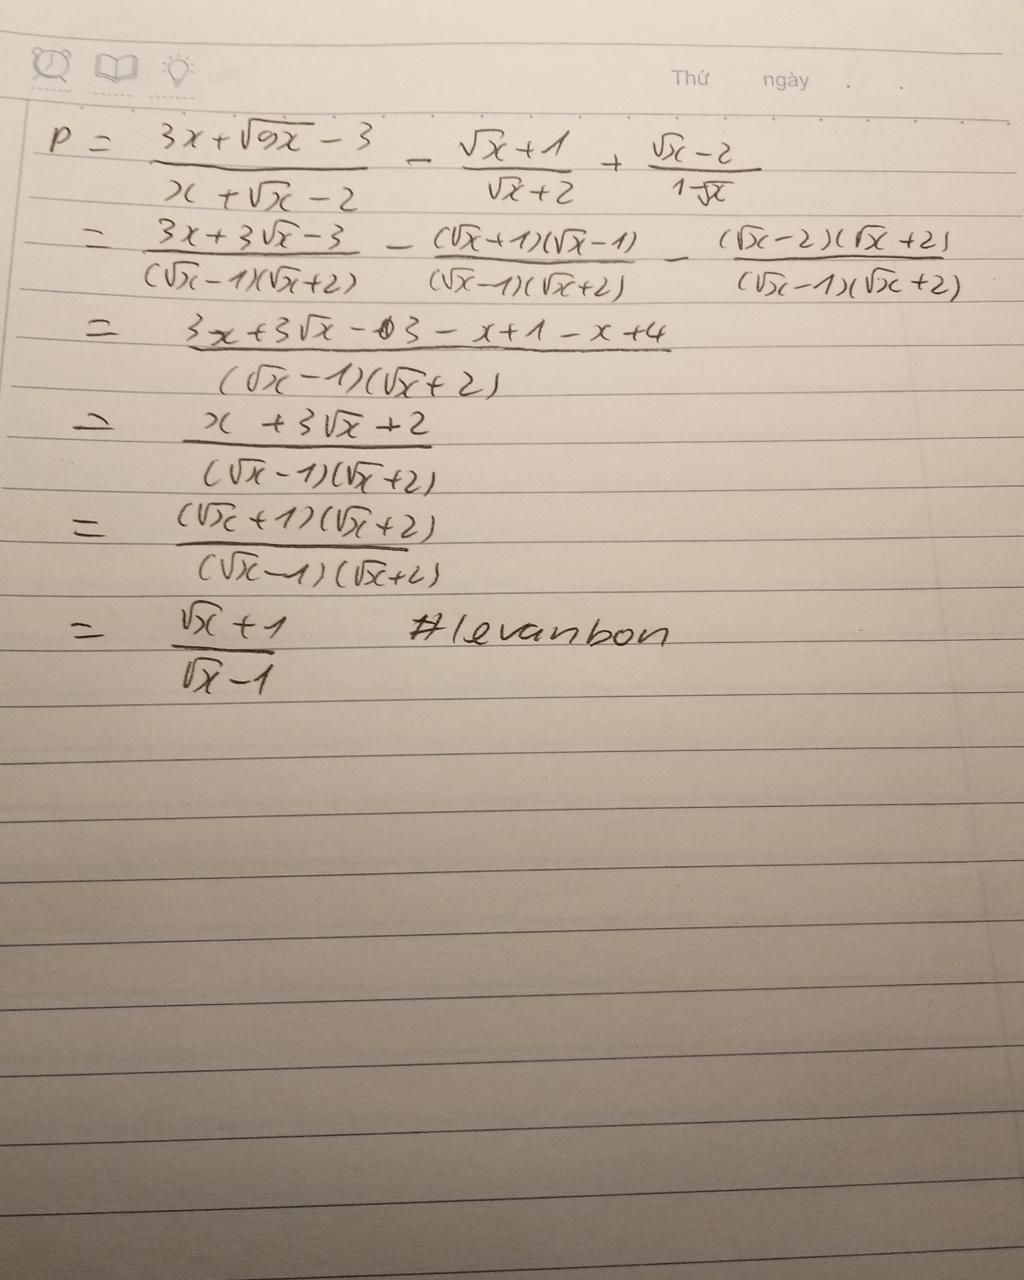 Thứ ngày . .
P = (3x + √9x - 3)/(x + √x - 2) - (√x + 1)/(√x + 2) + (√x - 2)/(1 - √x)
= (3x + 3√x - 3)/((√x - 1)(√x + 2)) - ((√x + 1)(√x - 1))/((√x - 1)(√x + 2)) - ((√x - 2)(√x + 2))/((√x - 1)(√x + 2))
= (3x + 3√x - 3 - x + 1 - x + 4)/((√x - 1)(√x + 2))
= (x + 3√x + 2)/((√x - 1)(√x + 2))
= ((√x + 1)(√x + 2))/((√x - 1)(√x + 2))
= (√x + 1)/(√x - 1) #levanbon